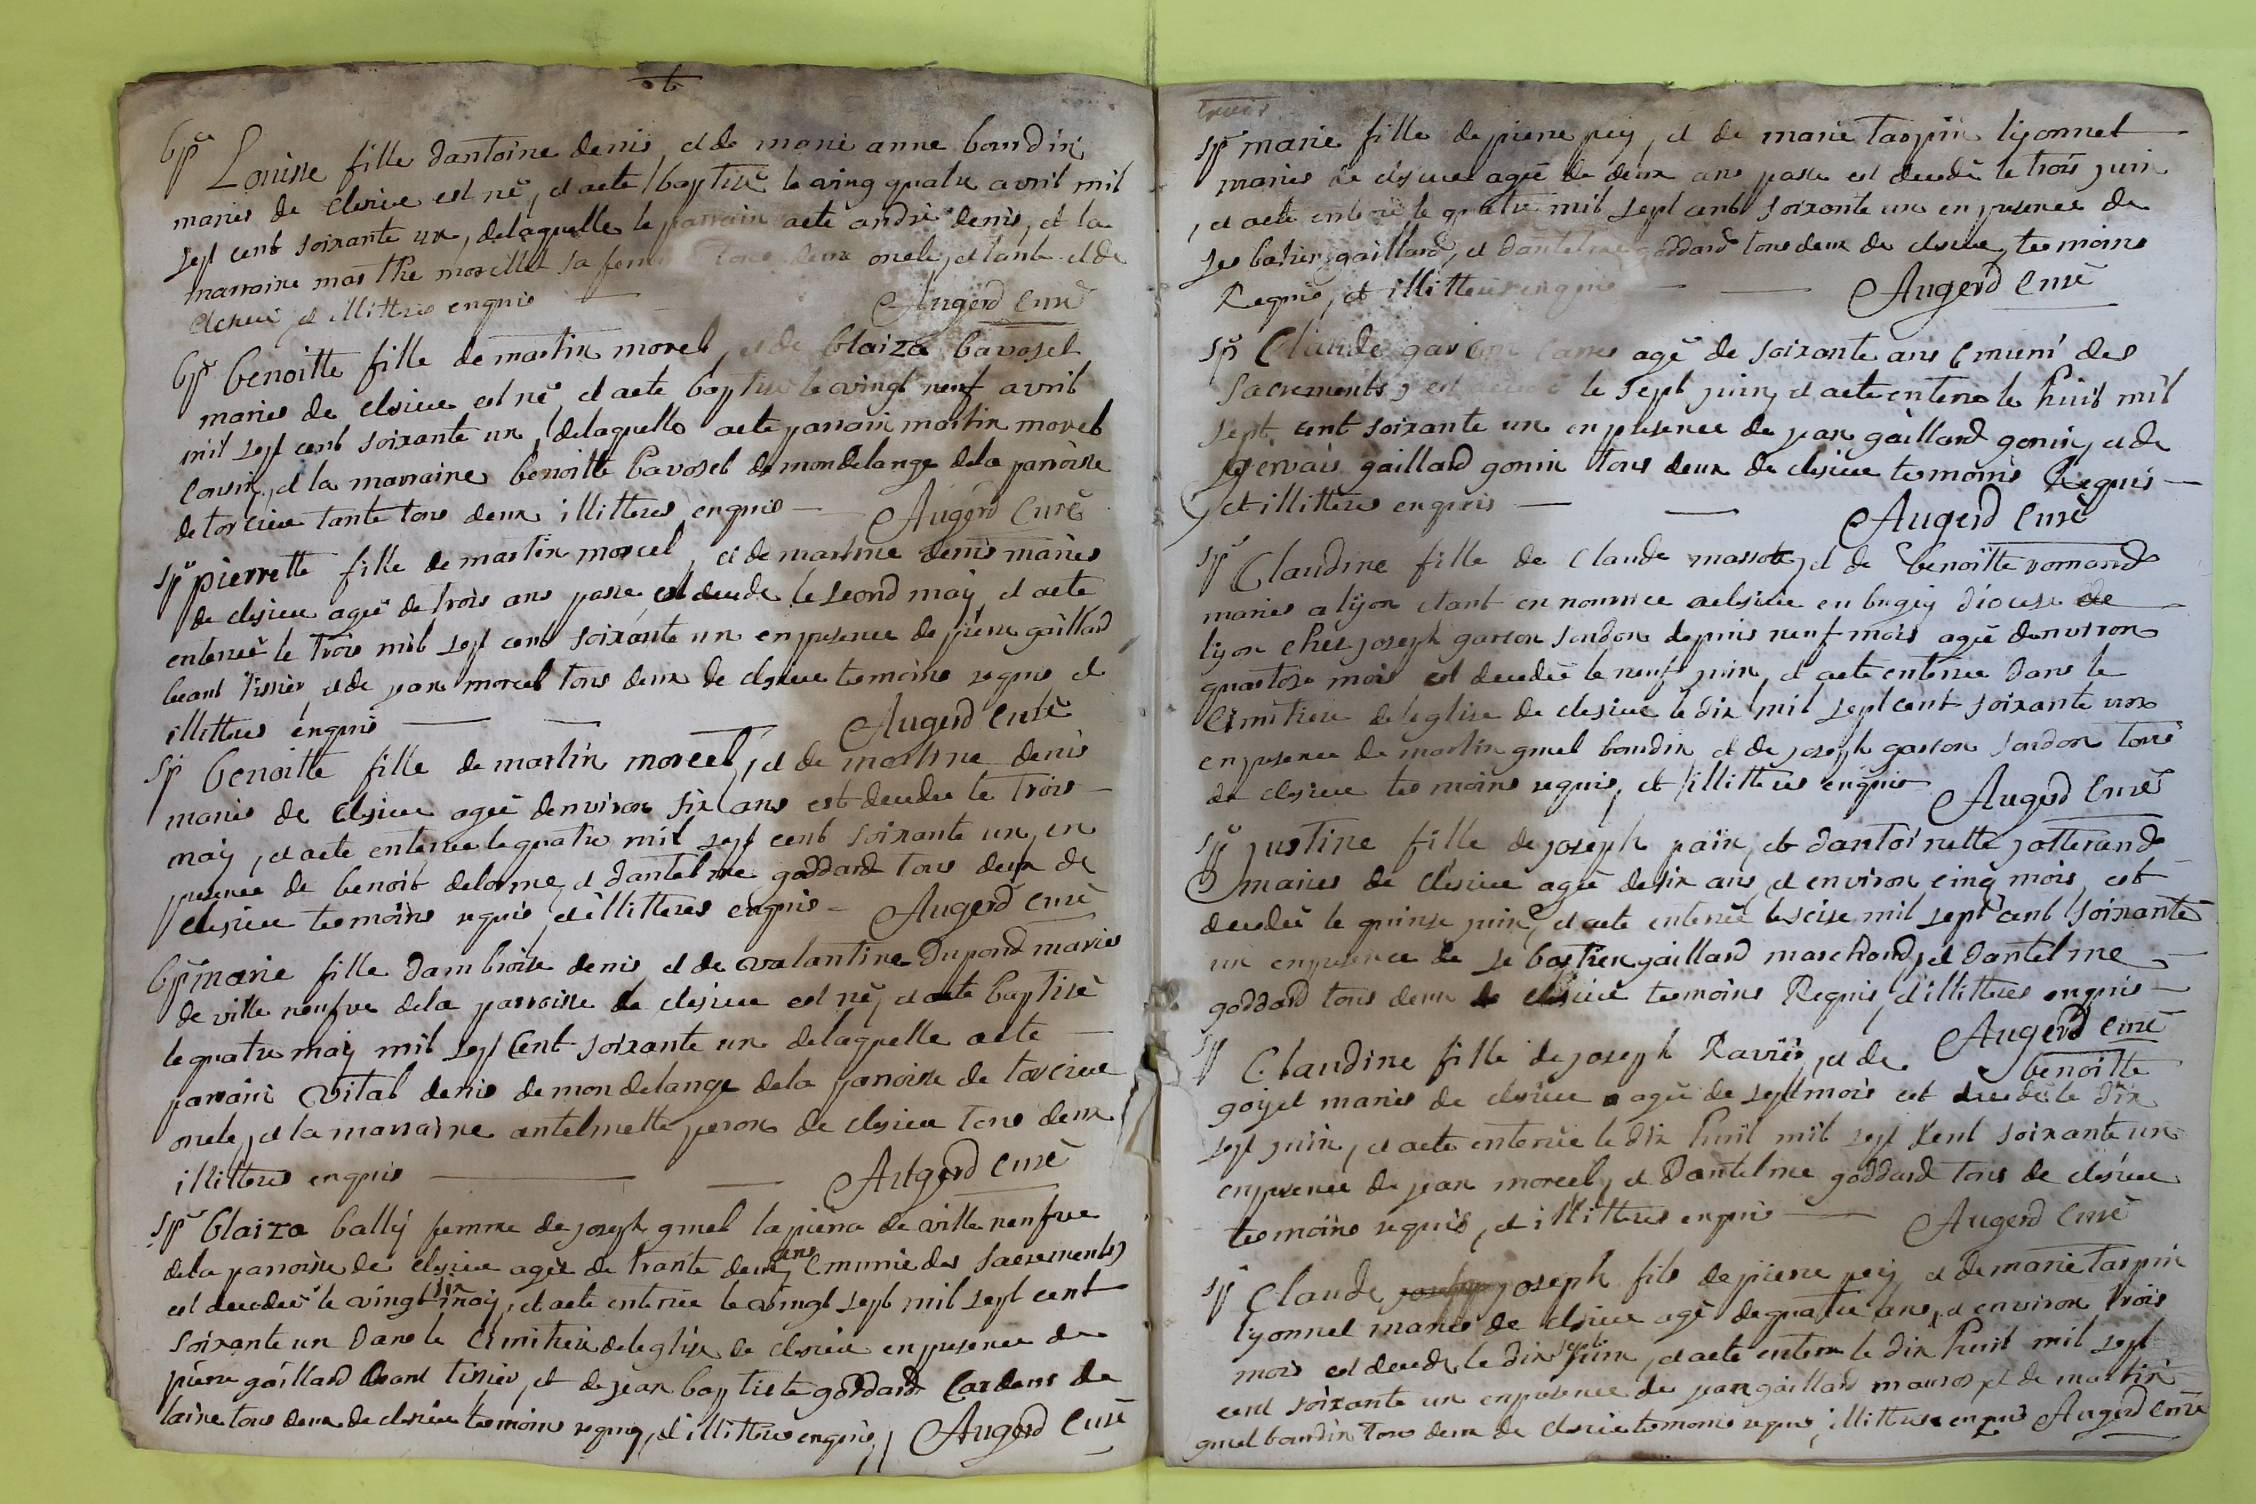 bp Louise fille dantoine denis, et de marie anne boudin
mariés de cleyzieu est né, et aeté baptisé le vingt quatre avril mil
sept cent soixante un, delaquelle le parrain aeté andré denis, et la
marraine marthe morellet sa femme tous deux oncle, et tante et de
cleyzieu, et illitterés enquis Augerd curé
bp benoitte fille de martin morel, et de blaiza bavosel
mariés de cleyzieu est né, et aeté baptisé le vingt neuf avril
mil sept cent soixante un, delaquelle aeté parrain martin morel
cousin, et la marraine benoitte bavosel de mondelange dela parroisse
de torcieu tante tous deux illitterés enquis Augerd curé
sp pierrette fille de martin morcel, et de martine denis mariés
de cleyzieu agée de trois ans passé est decedé le second may, et aeté
enterré le trois mil sept cent soixante un en presence de pierre gaillard
tissier, et de jean morcel tous deux de cleyzieu temoins requis et
illitterés enquis Augerd curé
sp benoitte fille de martin morcel, et de martine denis
mariés de cleyzieu agée denviron six ans est decedée le trois
may, et aeté enterrée le quatre mil sept cent soixante un, en
presence de benoit delorme, et dantelme goddard tous deux de
cleyzieu temoins requis, et illitterés enquis Augerd curé
bp marie fille dambroise denis, et de valantine dupond mariés
de ville neufve dela parroisse de cleyzieu est né, et aeté baptisé
le quatre may mil sept cent soixante un delaquelle aeté
parrain vital denis de mondelange dela parroisse de torcieu
oncle, et la marraine antelmette peron de cleyzieu tous deux
illitterés enquis Augerd curé
sp blaiza bally femme de joseph gmel lapierra de ville neufve
dela parroisse de cleyzieu agée de trante deux ans (munie des sacrements)
est decedée le vingt six may, et aeté enterrée le vingt sept mil sept cent
soixante un dans le cimitiere deleglise de cleyzieu en presence de
pierre gaillard tissier, et de jean baptiste goddard cardeur de
laine tous deux de cleyzieu temoins requis, et illitterés enquis Augerd curé
trois
sp marie fille de pierre pey, et de marie tarpin lyonnet
mariés de cleyzieu agée de deux ans passé est decedé le trois juin
, et aeté enterré le quatre mil sept cent soixante un en presence de
sebatien gaillard, et dantelme goddard tous deux de cleyzieu, temoins
Requis, et illitterés enquis Augerd curé
sp Claude agé de soixante ans (muni des
sacrements) est decedé le sept juin, et aeté enterré le huit mil
sept cent soixante un en presence de jean gaillard gonin, et de
gervais gaillard gonin tous deux de cleyzieu temoins Requis
et illitterés enquis Augerd curé
sp Claudine fille de Claude massot, et de benoitte romand
mariés a lyon etant en nourrice acleyzieu en bugey diocese de
lyon chez joseph garson sondon depuis neuf mois agée denviron
quatorze mois est decedée le neuf juin, et aeté enterrée dans le
Cimitiere deleglise de cleyzieu le dix mil sept cent soixante un
en presence de martin gmel boudin et de joseph garson sondon tous
de cleyzieu temoins requis, et illitterés enquis Augerd curé
sp justine fille de joseph pain, et dantoinette jotterand
mariés de cleyzieu agée de six ans, et environ cinq mois, est
decedée le quinse juin, et aeté enterrée le seise mil sept cent soixante
un en presence de sebastien gaillard marchand, et dantelme
goddard tous deux de cleyzieu temoins Requis, et illitterés enquis
Augerd curé
sp Claudine fille de joseph Ravier, et de benoitte
goyet mariés de cleyzieu agée de sept mois est decedée le dix
sept juin, et aeté enterrée le dix huit mil sept cent soixante un
en presence de jean morcel, et Dantelme goddard tous de cleyzieu
temoins requis, et illitterés enquis Augerd curé
sp Claude joseph fils de pierre pey, et de marie tarpin
lyonnet mariés de cleyzieu agé de quatre ans, et environ trois
mois est decedé le dix sept juin, et aeté enterré le dix huit mil sept
cent soixante un en presence de jean gaillard et de martin
gmel boudin tous deux de cleyzieu temoins requis, illitterés enquis Augerd curé